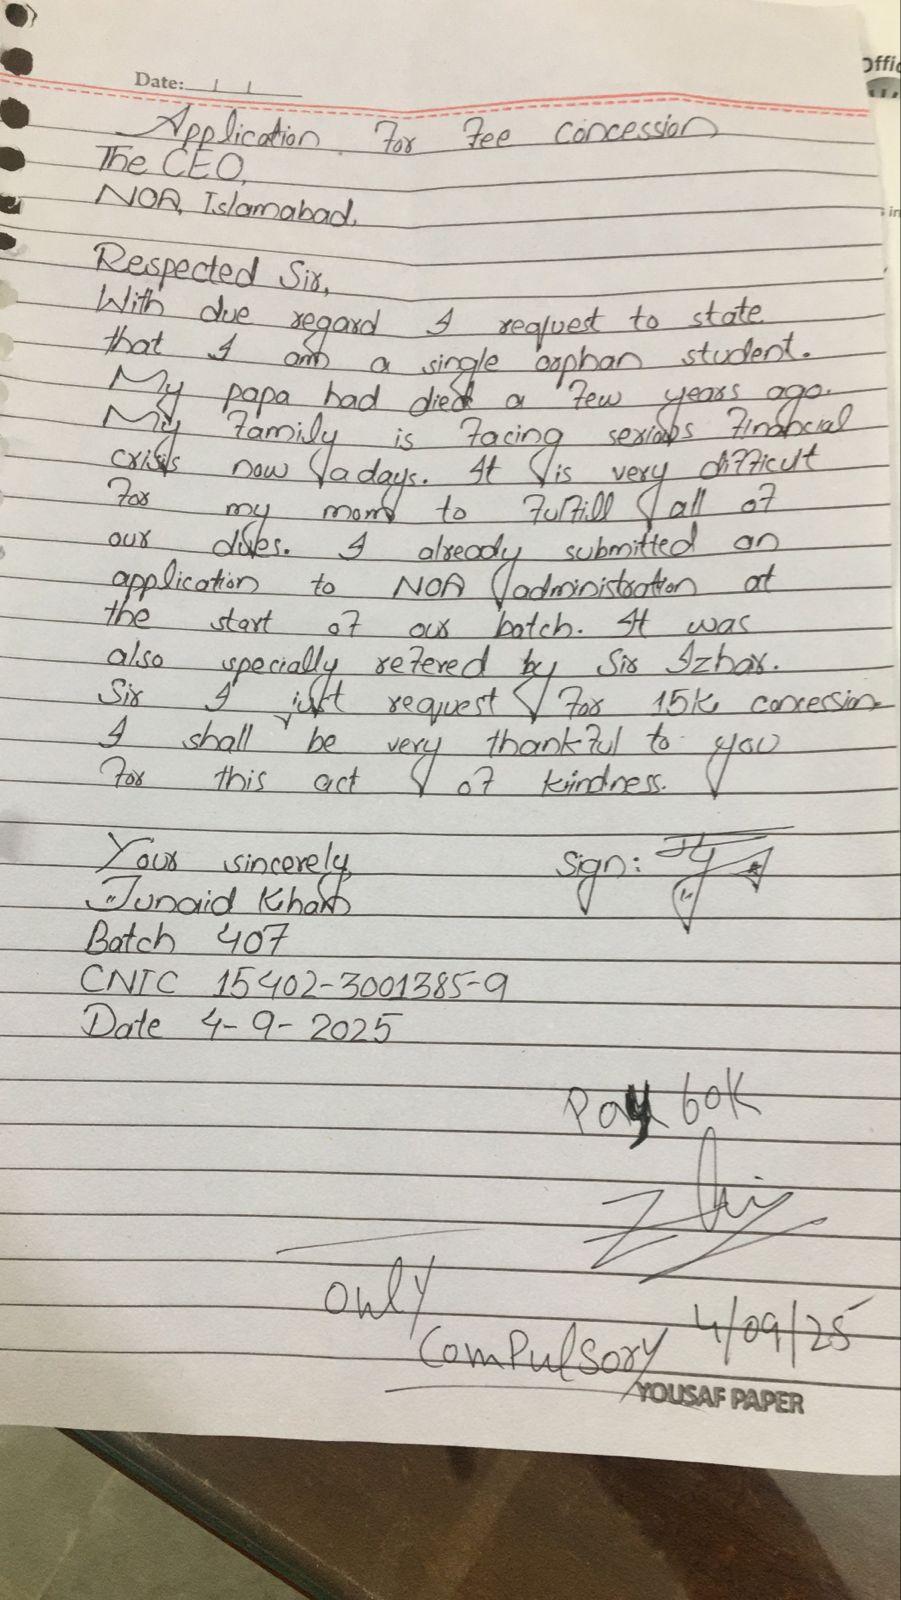 Offic
Date: / /
Application For Fee Concession
The CEO,
NOA, Islamabad.
Respected Sir,
With due regard I request to state
that I am a single orphan student.
My papa had died a few years ago.
My family is facing serious financial
crisis now a days. It is very difficult
for my mom to fulfill all of
our dues. I already submitted an
application to NOA administration at
the start of our batch. It was
also specially refered by Sir Izhar.
Sir I just request for 15k concession
I shall be very thankful to you
for this act of kindness.
Your sincerely, Sign:
Junaid Khan
Batch 407
CNIC 15402-3001385-9
Date 4-9-2025
Pay 60K
only
Compulsory 4/09/25
YOUSAF PAPER